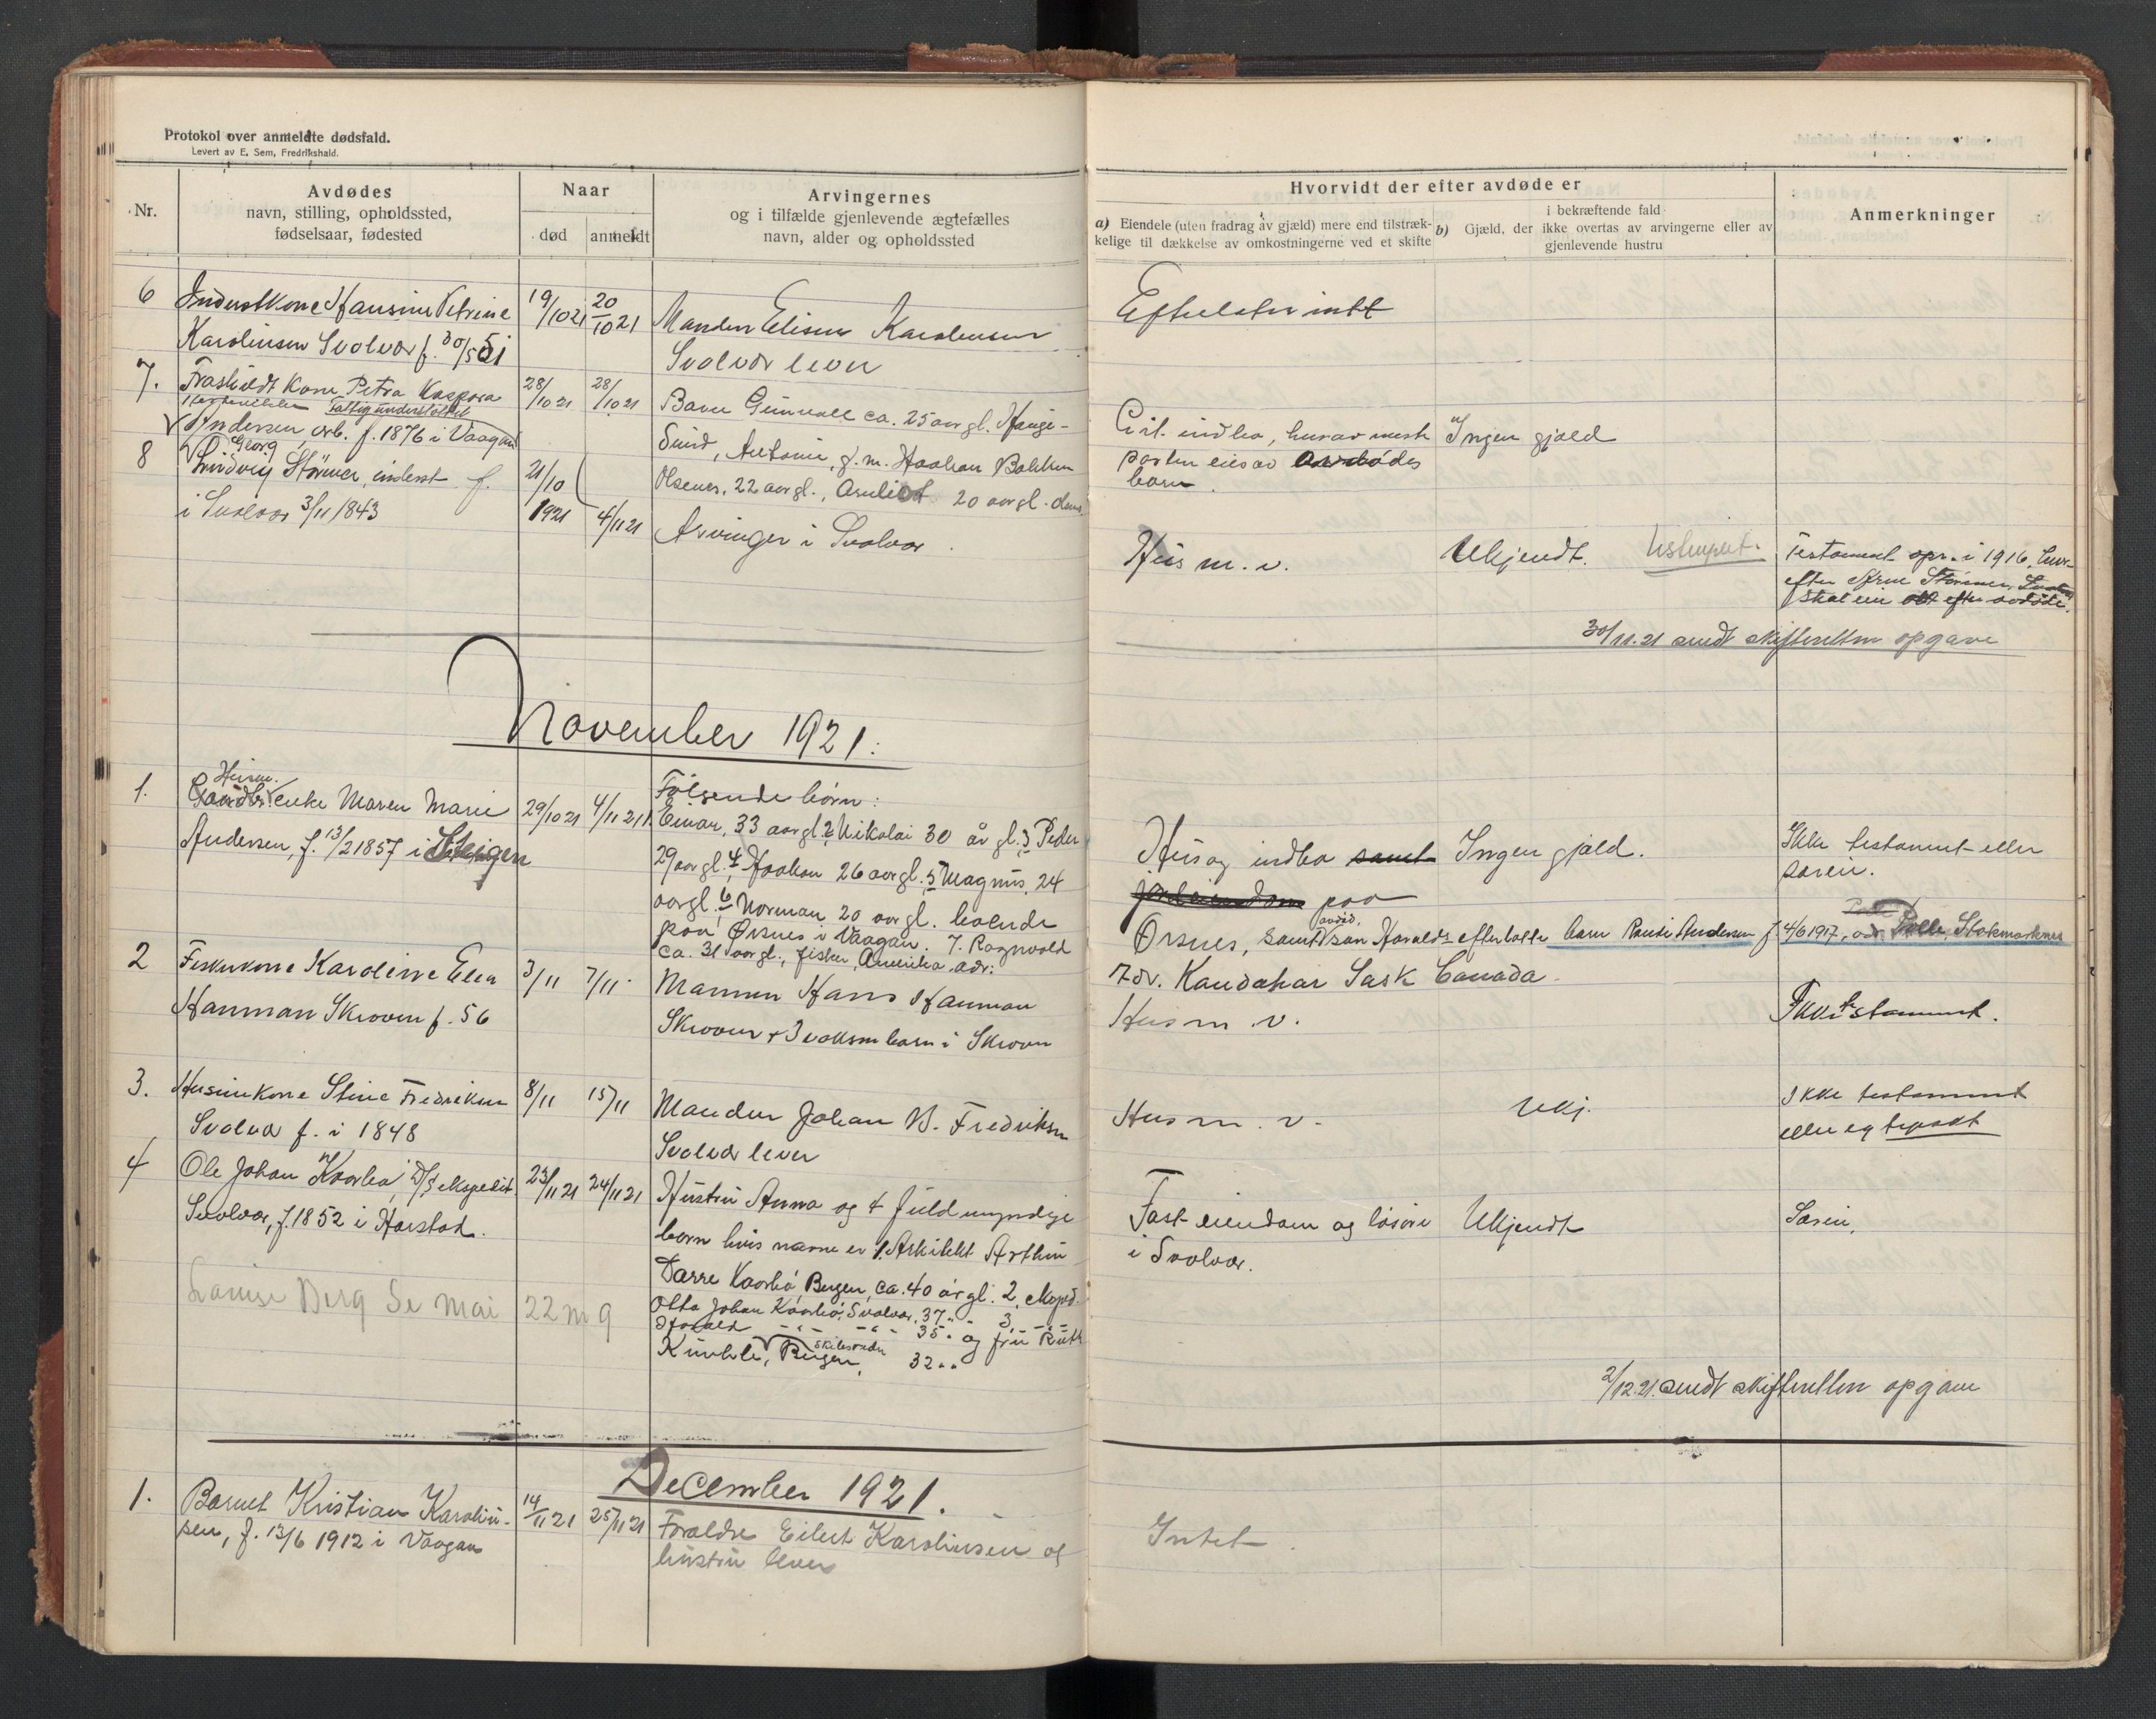 Protokol over anmeldte dødsfald.
Levert av E. Sem, Fredrikshald.
Nr.
Avdødes
navn, stilling, opholdssted,
fødselsaar, fødested
Naar
død
anmeldt
Arvingernes
og i tilfælde gjenlevende ægtefælles
navn, alder og opholdssted
Hvorvidt der efter avdøde er
a) Eiendele (uten fradrag av gjæld) mere end tilstræk-
kelige til dækkelse av omkostningerne ved et skifte
i bekræftende fald
b) Gjæld, der ikke overtas av arvingerne eller av
gjenlevende hustru
Anmerkninger
6 Inderstkone Hansine Petrine 19/10 21 20/10 21 Manden Elisæus Karolinsen
Karolinsen Svolvær f. 30/5 51 Svolvær lever
Efterlater intet
7. Fraskildt Kone Petra Kaspara 28/10 21 28/10 21 Barn Gunvald ca. 25 aar gl. Hauge-
Fattigunderstøttet
Andersen, arb. f. 1876 i Vaagan
sund, Antonie, g. m. Haakon Bakken
Olsenes, 22 aar gl., 20 aar gl. sams.
indbo, hvorav meste
parten eies av avdødes
barn.
Ingen gjæld
8 Georg
Ludvig Störmer, inderst f. 21/10 1921 4/11 21
i Svolvær 3/11 1843
Arvinger i Svolvær.
Hus m. v. Ukjendt.
Testament opr. i 1916, hvor-
efter Störmer,
skal eie alt efter avdøde.
30/11.21 sendt skifteretten opgave
November 1921.
1. Husm.
enke Maren Marie 29/10 21 4/11 21
Andersen, f. 13/2 1857 i Steigen
Følgende børn:
1 Einar, 33 aar gl. 2 Nikolai 30 år gl. 3 Peder
29 aar gl. 4 Haakon 26 aar gl. 5 Magnus, 24
aar gl. 6 Norman 20 aar gl. boende
paa Ørsnes i Vaagan. 7. Ragnvald
ca. 31 aar gl., fisker, Amerika adr:
Hus og indbo samt Ingen gjæld.
jordeiendom paa
avdød.
Ørsnes, samt søn Haralds efterlatte barn Randi Andersen f 4/6 1917, adr Stokmarknes
Adr. Kandahar Sask Canada.
Ikke testament eller
særeie.
2 Fiskerkone Karoline Elen 3/11 7/11 Mannen Hans Hanman
Hanman Skroven f. 56 Skroven + 3 voksne barn i Skroven
Hus m. v.
Ikke testament.
3. Husmkone Stine Fredriksen 8/11 15/11 Manden Johan B. Fredriksen
Svolvær f. i 1848 Svolvær lever
Hus m. v. Ukj.
Ikke testament
eller egtepakt
4 Ole Johan Kaarbø, D/S ekspedit. 23/11 21 24/11 21
Svolvær, f. 1852 i Harstad.
Hustru Anna og 4 fuldmyndige
barn hvis navne er 1. Arkitekt Arthur
Darre Kaarbø, Bergen, ca. 40 år gl. 2. eksped.
Otto Johan Kaarbø, Svolvær, 37 " " 3. -"-
Harald -"- -"- 35 " og fru Ruth
Kunkle, Bergen, 32 " "
Fast eiendom og løsøre Ukjendt
i Svolvær.
Særeie.
Lovise Berg Se mai 22 nr 9
2/12.21. sendt skifteretten opgave
December 1921.
1. Barnet Kristian Karolin- 14/11 21 25/11 21
sen, f. 13/6 1912 i Vaagan
Forældre Eilert Karolinsen og
hustru lever
Intet.